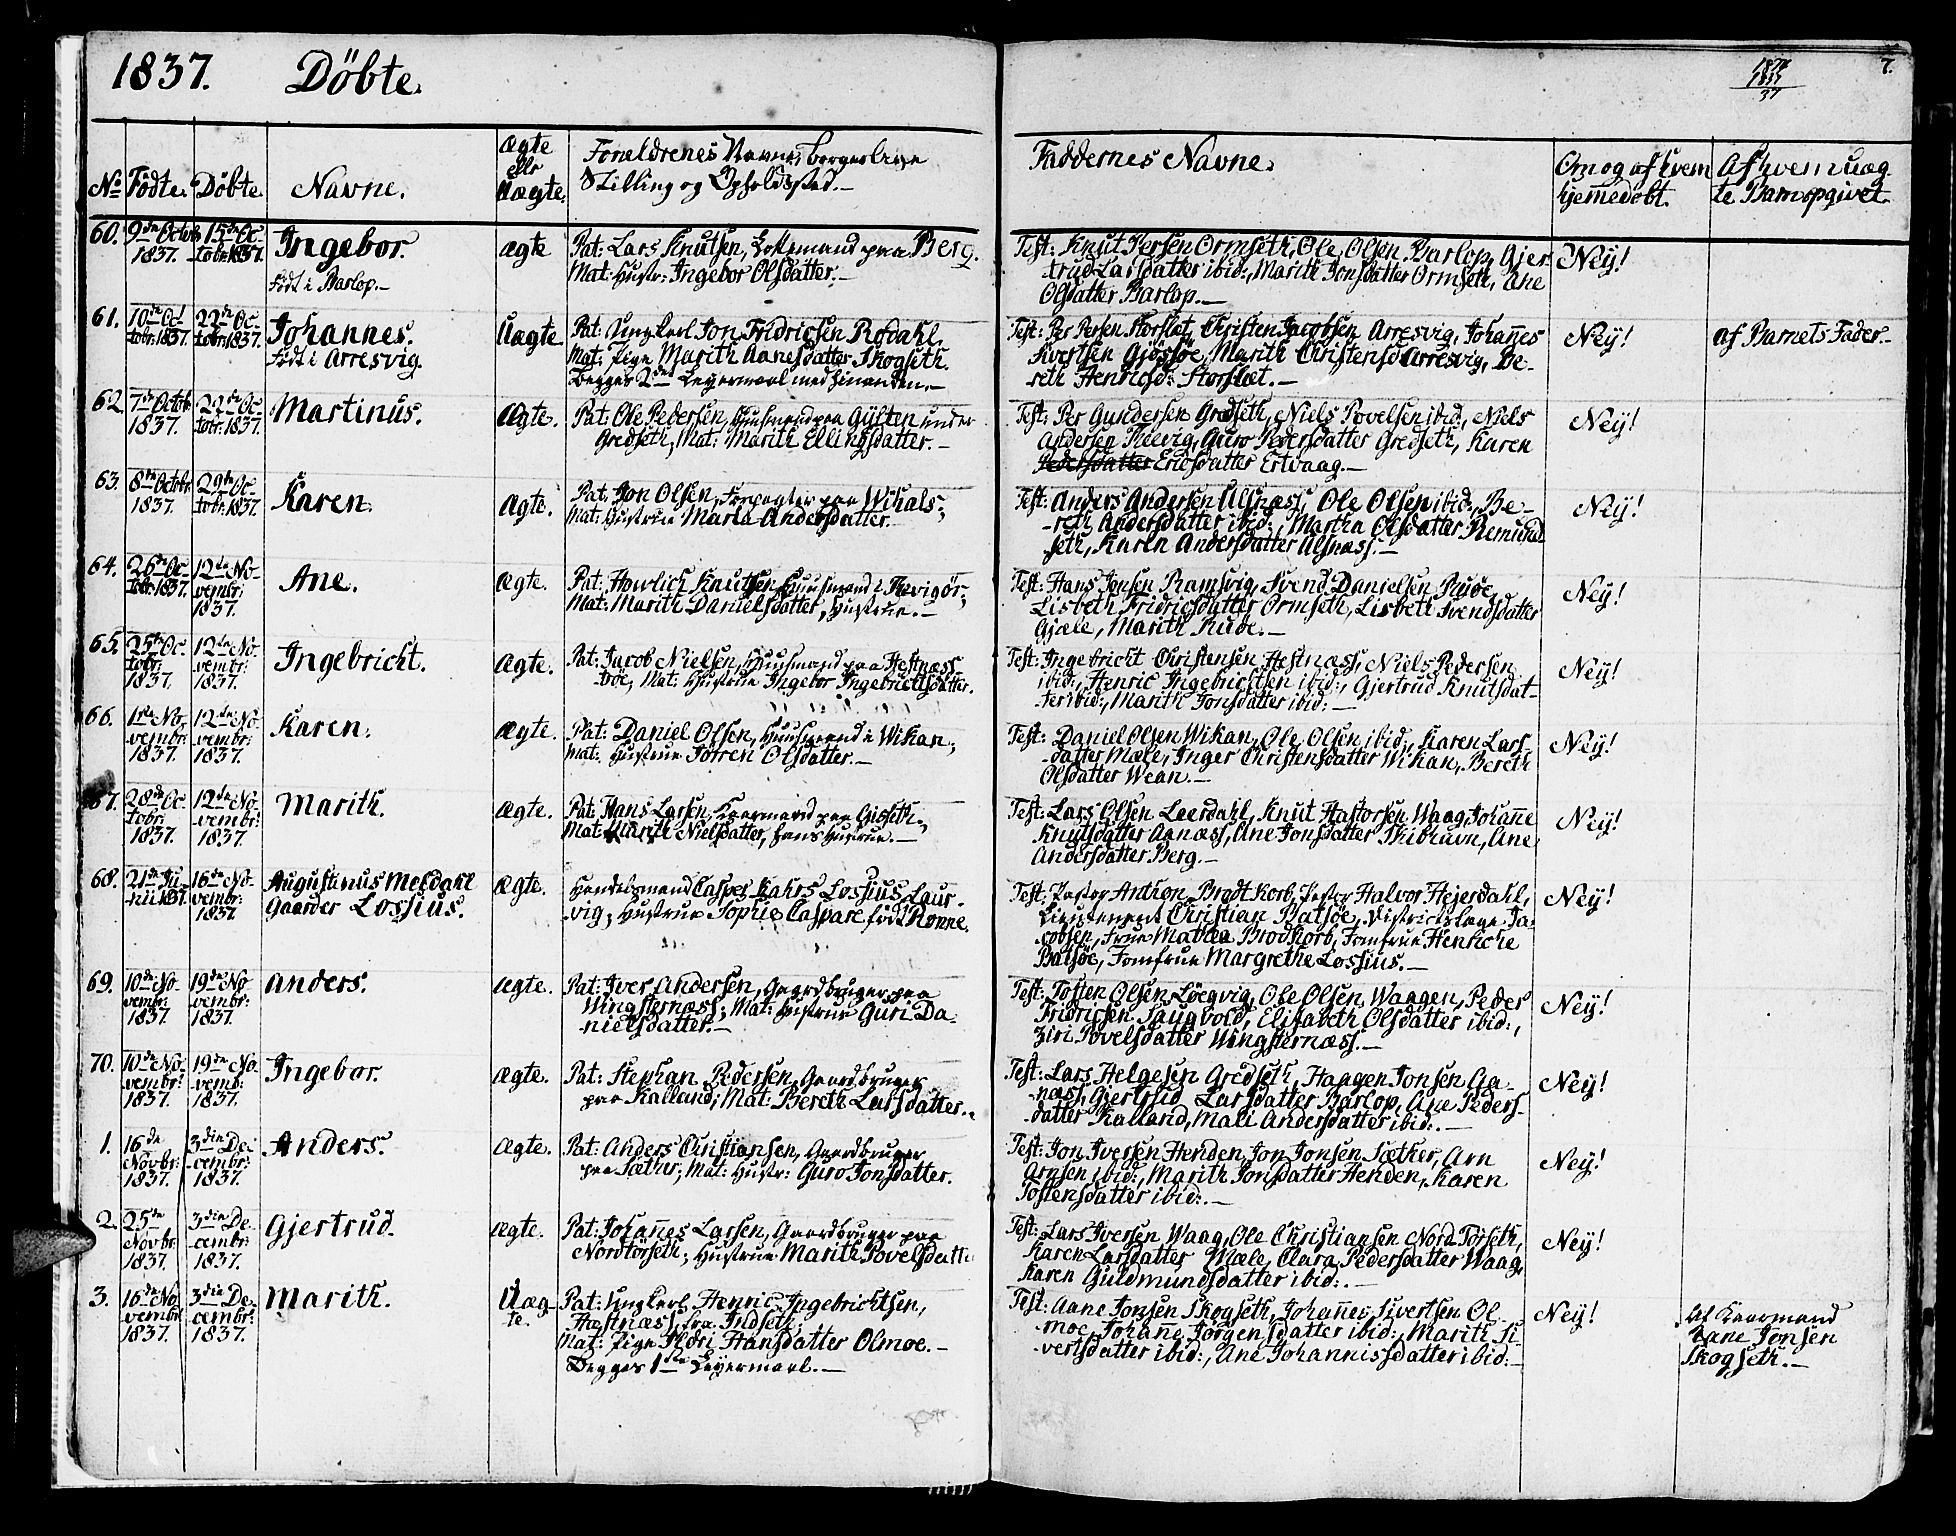 1837. Döbte.
1874
1837
37
7.
No Födte. Döbte. Navne. Ægte elr Uægte. Forældrenes Navne, borgerlige
Stilling og Opholdsted.—
Faddernes Navne.
Om og af hvem
hjemmedöbt.
Af hvem uæg-
te Barn opgivet.
60. 9de Octob 1837. 15de Oc-
tobr: 1837. Ingebor.
Födt i Barlop.—
ægte Pat: Lars Knutsen, Lottemand paa Berg.
Mat: Hustr: Ingebor Olsdatter.—
Test: Knut Persen Ormseth, Ole Olsen Barlop, Gjer-
trud Larsdatter ibid:, Marith Jonsdatter Ormseth, Ane
Olsdatter Barlop.—
Ney!
61. 10de Oc-
tobr: 1837. 22de Oc-
tobr: 1837. Johannes.
Födt i Arresvig.
Uægte Pat: Ungkarl Jon Fridrichsen Rosdahl.
Mat: Pige Marith Aanesdatter Skogseth.
Begges 2det Leyermaal med hinanden.—
Test: Per Persen Storslæt, Christen Jacobsen Arresvig, Johannes
Sivertsen Gjössöe, Marith Christensd Arresvig, Be-
reth Henricsd: Storslæt.—
Ney!
af Barnets Fader.—
62. 7de Octob 1837. 22de Oc-
tobr: 1837. Martinus.
Ægte. Pat: Ole Pedersen, Huusmand paa Gylten under
Gredseth, Mat: Marith Ellingsdatter.—
Test: Per Gundersen Gredseth, Niels Povelsen ibid:, Niels
Andersen Rievig, Guro Pedersdatter Gredseth, Karen
Pedersdatter Ericsdatter Ertvaag.—
Ney!
63. 8de Octobr 1837. 29de Oc-
tobr: 1837. Karen.
Ægte. Pat: Jon Olsen, Forpagter paa Wihals;
Mat: Hustrue Marta Andersdatter.
Test: Anders Andersen Ulsnæss, Ole Olsen ibid:, Be-
reth Andersdatter ibid:, Martha Olsdatter Remmid-
seth, Karen Andersdatter Alsnæss.—
Ney!
64. 26de Oc-
tobr: 1837. 12de No-
vembr: 1837. Ane.
ægte. Pat: Knutsen, Huusmand i Revigör;
Mat: Marith Danielsdatter, Hustrue.—
Test: Hans Jensen Ramsvig, Svend Danielsen Rude,
Lisbeth Fridricsdatter Ormseth, Lisbeth Svendsdatter
Gjæle, Marith Rude.—
Ney!
65. 25de Oc-
tobr: 1837. 12de No-
vembr: 1837. Ingebricht.
Ægte. Pat: Jacob Nielsen, Huusmand paa Hestnæss-
Mat: Hustrue Ingebor Ingebrichtsdatter.
Test: Ingebricht Christensen Hestnæss, Niels Pedersen
ibid:, Henric Ingebrichtsen ibid:, Gjertrud Knutsdat-
ter ibid:, Marith Jonsdatter ibid:—
Ney!
66. 1ste No-
vembr: 1837. 12de No-
vembr: 1837. Karen.
Ægte. Pat: Daniel Olsen, Huusmand i Wikan;
Mat: Hustrue Sörren Olsdatter.—
Test: Daniel Olsen Wikan, Ole Olsen ibid:, Karen Lars-
datter Mæle, Inger Christensdatter Wikan, Bereth
Olsdatter Wean.—
Ney!
67. 28de Oc-
tobr: 1837. 12de No-
vembr: 1837. Marith.
ægte. Pat: Hans Larsen, Kaarmand paa Giöseth;
Mat: Marith Nielsdatter, hans Hustrue.—
Test: Lars Olsen Leerdahl, Knut Hastorsen Waag, Johanne
Knutsdatter Aanæss, Ane Jonsdatter Skibhavn, Ane
Andersdatter Berg.—
Ney!
68. 21de Ju-
nii 1837. 16de No-
vembr: 1837. Augustinus Meldahl
Gaarder Lossius.
Ægte. Handelsmand Casper Kahrs Lossius, Laur-
vig; Hustrue Sophie Caspare född Rønne.
Test: Pastor Anthon Brodtkorb, Pastor Halvor Hejerdahl,
Lieutenant Christian Batsöe, Districtslæge Ja-
cobsen, Frue Mathea Brodkorb, Jomfrue Henriche
Batsöe, Jomfrue Margrethe Lossius.—
Ney!
69. 10de No-
vembr: 1837. 19de No-
vembr: 1837. Anders.
ægte. Pat: Iver Andersen, Gaardbruger paa
Wingsternæss; Mat: Hustrue Guri Da-
nielsdatter.—
Test: Tosten Olsen Löegvig, Ole Olsen Waagen, Peder
Fridrissen Saugvold, Elisabeth Olsdatter ibid:,
Ziri Povelsdatter Wingsternæss.—
Ney!
70. 10de No-
vembr: 1837. 19de No-
vemb: 1837. Ingebor.
ægte. Pat: Stephan Pedersen, Gaardbruger
paa Kalland; Mat: Bereth Larsdatter.
Test: Lars Helgesen Gredseth, Haagen Jonsen Aa-
næss, Gjertrud Larsdatter Barlop, Ane Peders-
datter Kalland, Mali Andersdatter ibid:.—
Ney!
1. 16de
Novbr: 1837. 3die De-
cembr: 1837. Anders.
Ægte. Pat: Anders Christiansen, Gaardbruger
paa Sæther; Mat: Hustr: Guro Jonsdatter.
Test: Jon Iversen Henden, Jon Jonsen Sæther, Arn
Arnsen ibid:, Marith Jonsdatter Henden, Karen
Tostensdatter ibid:.—
Ney!
2. 25de
Novbr: 1837. 3die De-
cembr: 1837. Gjertrud.
Ægte. Pat: Johannes Larsen, Gaardbruger paa
Nordtörseth; Hustrue Marith Povelsdatter
Test: Lars Iversen Waag, Ole Christiansen Nord-Törseth,
Karen Larsdatter Mæle, Clara Pedersdatter Waag,
Karen Guldmundsdatter ibid:.—
Ney!
3. 16de No-
vembr 1837. 3die De-
cembr: 1837. Marith.
Uæg-
te. Pat: Ungkarl Henric Ingebrichtsen,
Hæstnæss, fra Indseth;
Mat: Pige Hansdatter Olmoe.—
Begges 1ste Leyermaal.—
Test: Aane Jonsen Skogseth, Johannes Sivertsen Ol-
moe, Johanne Jörgensdatter ibid:, Marith Si-
vertsdatter ibid:, Ane Johannisdatter ibid:—
Ney!
Af Kaarmand
Aane Jonsen
Skogseth.—